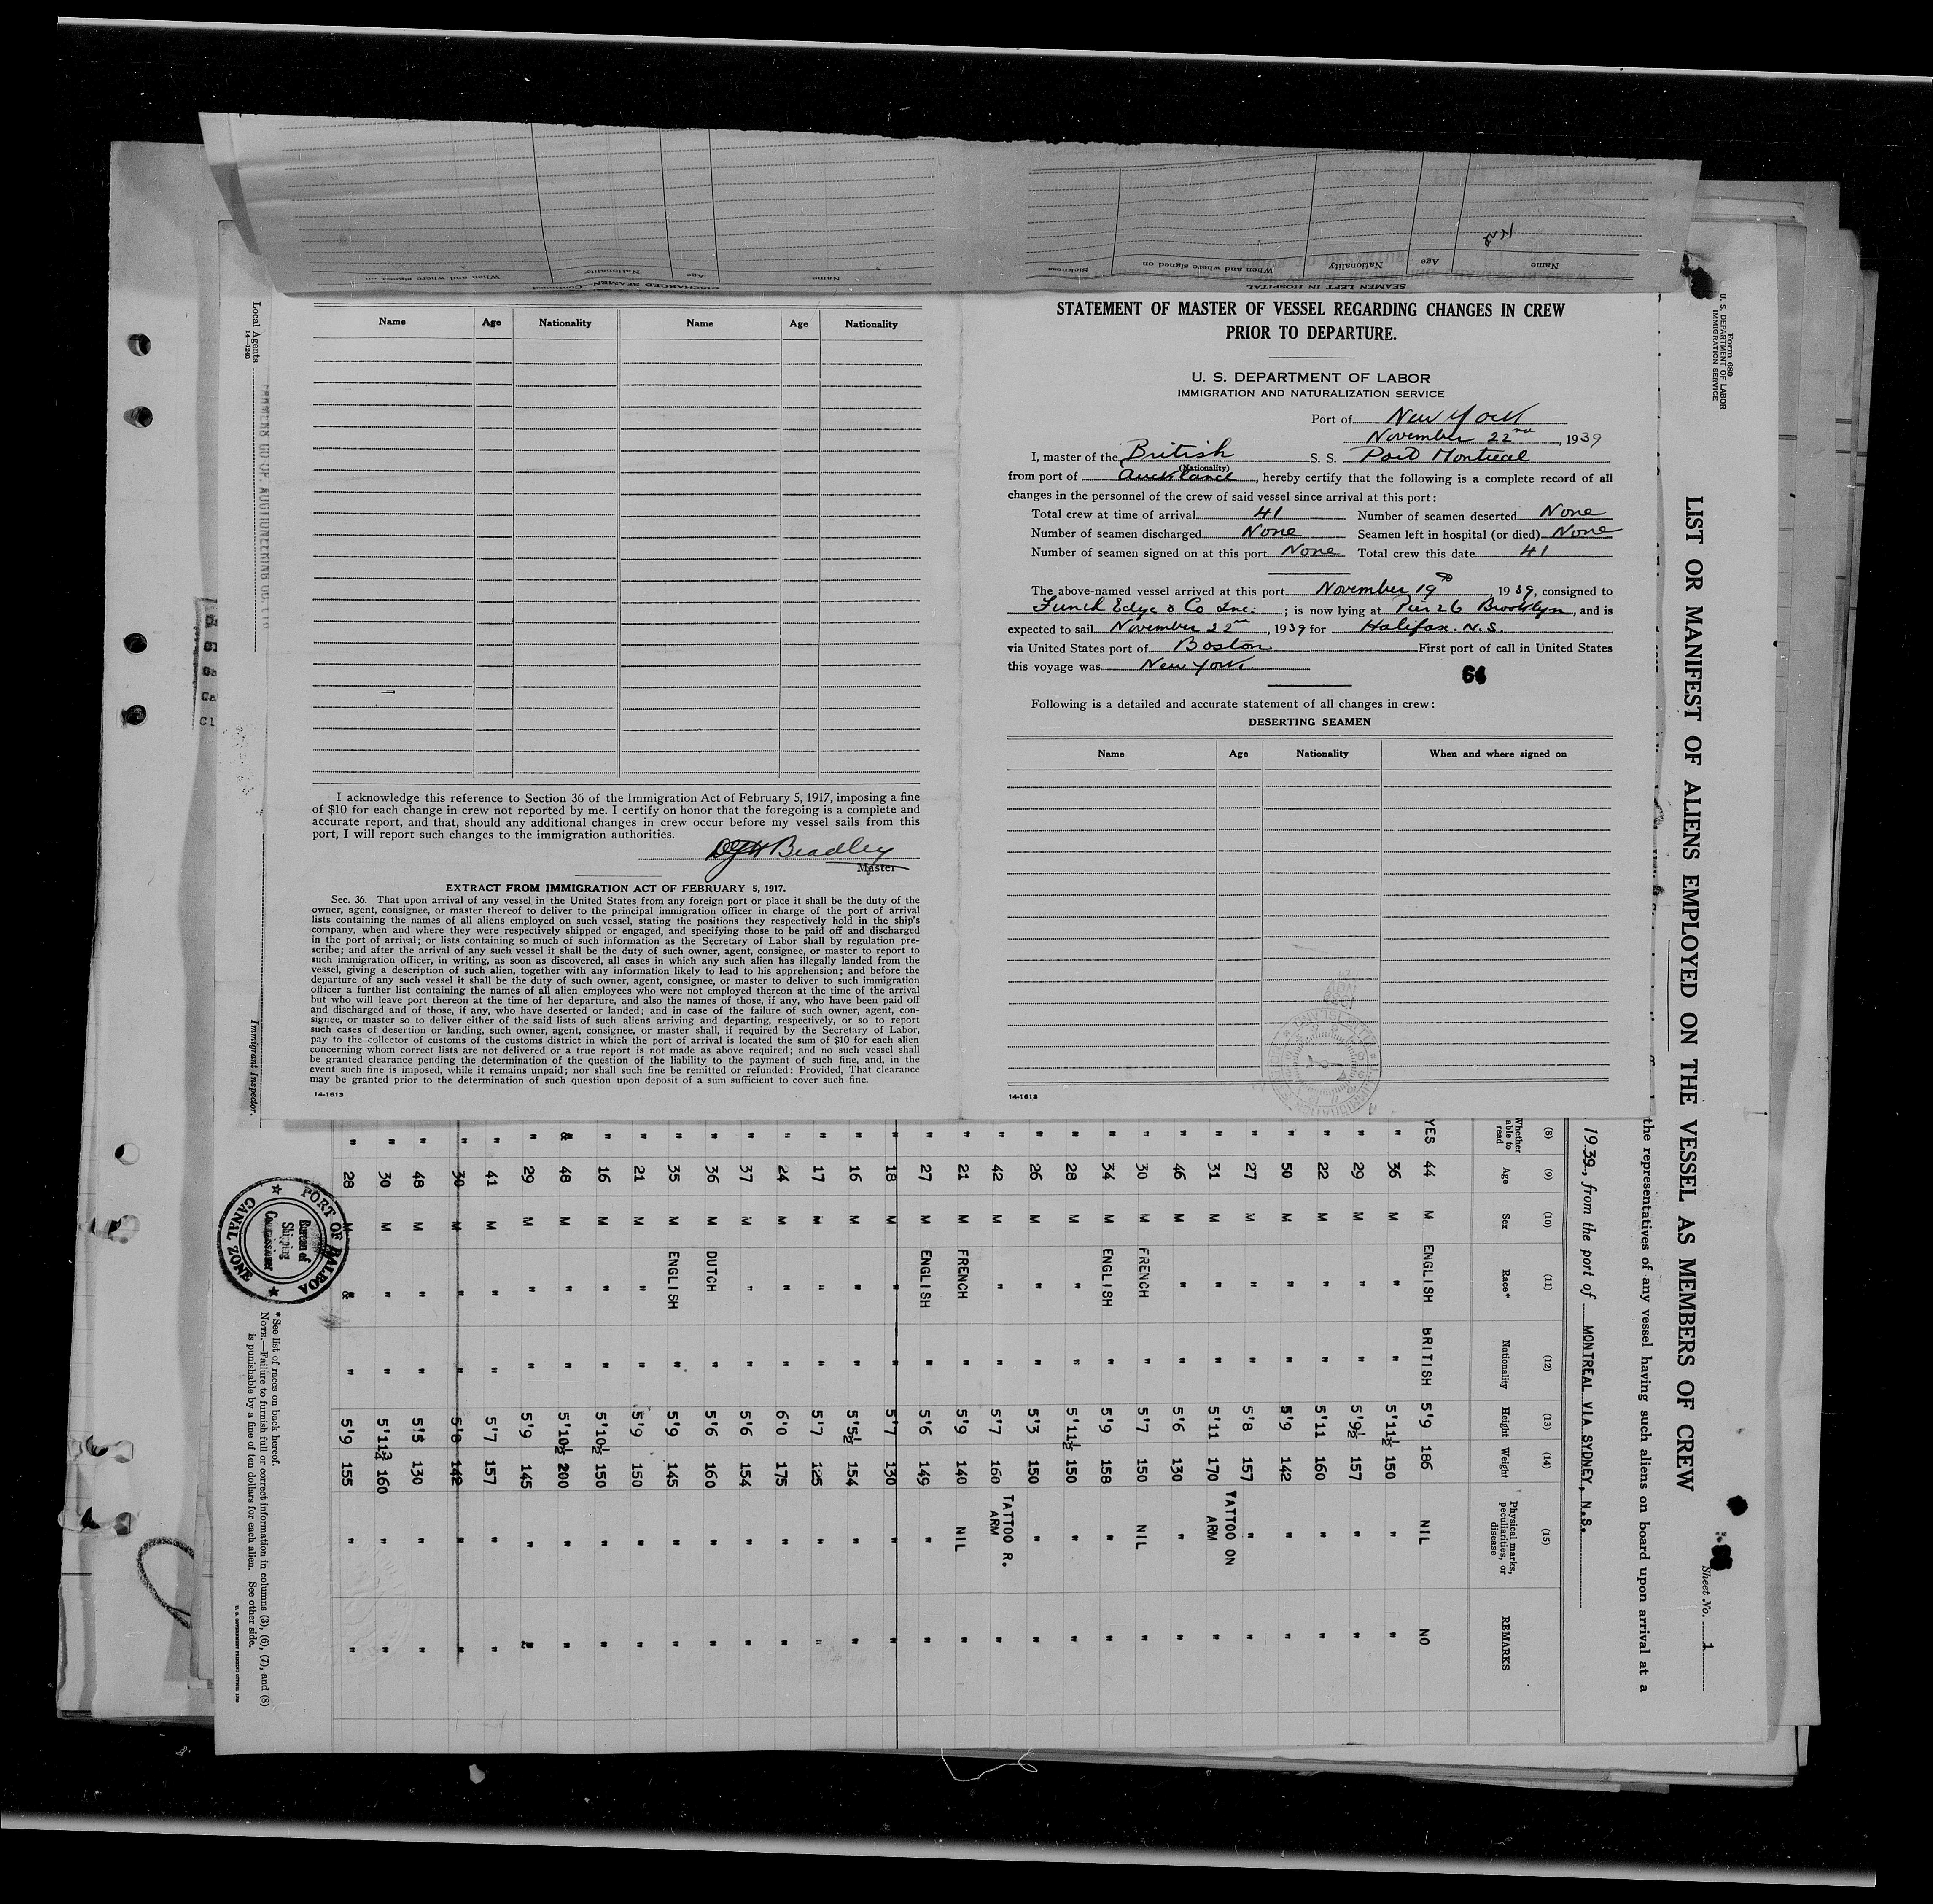 Name Age Nationality Name Age Nationality
I acknowledge this reference to Section 36 of the Immigration Act of February 5, 1917, imposing a fine
of $10 for each change in crew not reported by me. I certify on honor that the foregoing is a complete and
accurate report, and that, should any additional changes in crew occur before my vessel sails from this
port, I will report such changes to the immigration authorities.
Bradley
Master
EXTRACT FROM IMMIGRATION ACT OF FEBRUARY 5, 1917.
Sec. 36. That upon arrival of any vessel in the United States from any foreign port or place it shall be the duty of the
owner, agent, consignee, or master thereof to deliver to the principal immigration officer in charge of the port of arrival
lists containing the names of all aliens employed on such vessel, stating the positions they respectively hold in the ship's
company, when and where they were respectively shipped or engaged, and specifying those to be paid off and discharged
in the port of arrival; or lists containing so much of such information as the Secretary of Labor shall by regulation pre-
scribe; and after the arrival of any such vessel it shall be the duty of such owner, agent, consignee, or master to report to
such immigration officer, in writing, as soon as discovered, all cases in which any such alien has illegally landed from the
vessel, giving a description of such alien, together with any information likely to lead to his apprehension; and before the
departure of any such vessel it shall be the duty of such owner, agent, consignee, or master to deliver to such immigration
officer a further list containing the names of all alien employees who were not employed thereon at the time of the arrival
but who will leave port thereon at the time of her departure, and also the names of those, if any, who have been paid off
and discharged and of those, if any, who have deserted or landed; and in case of the failure of such owner, agent, con-
signee, or master so to deliver either of the said lists of such aliens arriving and departing, respectively, or so to report
such cases of desertion or landing, such owner, agent, consignee, or master shall, if required by the Secretary of Labor,
pay to the collector of customs of the customs district in which the port of arrival is located the sum of $10 for each alien
concerning whom correct lists are not delivered or a true report is not made as above required; and no such vessel shall
be granted clearance pending the determination of the question of the liability to the payment of such fine, and, in the
event such fine is imposed, while it remains unpaid; nor shall such fine be remitted or refunded: Provided, That clearance
may be granted prior to the determination of such question upon deposit of a sum sufficient to cover such fine.
14-1613
STATEMENT OF MASTER OF VESSEL REGARDING CHANGES IN CREW
PRIOR TO DEPARTURE.
U. S. DEPARTMENT OF LABOR
IMMIGRATION AND NATURALIZATION SERVICE
Port of New York
November 22nd, 1939
I, master of the British S. S. Port Montreal
(Nationality)
from port of Auckland, hereby certify that the following is a complete record of all
changes in the personnel of the crew of said vessel since arrival at this port:
Total crew at time of arrival 41 Number of seamen deserted None
Number of seamen discharged None Seamen left in hospital (or died) None
Number of seamen signed on at this port None Total crew this date 41
The above-named vessel arrived at this port November 19th, 1939, consigned to
Funch Edye & Co Inc. ; is now lying at Pier 26 Brooklyn, and is
expected to sail November 22nd, 1939 for Halifax. N.S.
via United States port of Boston First port of call in United States
this voyage was New York.
64
Following is a detailed and accurate statement of all changes in crew:
DESERTING SEAMEN
Name Age Nationality When and where signed on
14-1613
Form 680
U. S. DEPARTMENT OF LABOR
IMMIGRATION SERVICE
LIST OR MANIFEST OF ALIENS EMPLOYED ON THE VESSEL AS MEMBERS OF CREW
Sheet No. 1
the representatives of any vessel having such aliens on board upon arrival at a
, 1939, from the port of MONTREAL VIA SYDNEY, N.S.
(8) (9) (10) (11) (12) (13) (14) (15)
Whether able to read Age Sex Race* Nationality Height Weight Physical marks, peculiarities, or disease REMARKS
YES 44 M ENGLISH BRITISH 5'9 186 NIL NO
" 36 M " " 5'11½ 150 " "
" 29 M " " 5'9½ 157 " "
" 22 M " " 5'11 160 " "
" 50 M " " 5'9 142 " "
" 27 M " " 5'8 157 " "
" 31 M " " 5'11 170 TATTOO ON ARM "
" 46 M " " 5'6 130 " "
" 30 M FRENCH " 5'7 150 NIL "
" 34 M ENGLISH " 5'9 158 " "
" 28 M " " 5'11½ 150 " "
" 26 M " " 5'3 150 " "
" 42 M " " 5'7 160 TATTOO R. ARM "
" 21 M FRENCH " 5'9 140 NIL "
" 27 M ENGLISH " 5'6 149 " "
" 18 M " " 5'7 130 " "
" 16 M " " 5'5½ 154 " "
" 17 M " " 5'7 125 " "
" 24 M " " 6'0 175 " "
" 37 M " " 5'6 154 " "
" 36 M DUTCH " 5'6 160 " "
" 35 M ENGLISH " 5'9 145 " "
" 21 " " 5'9 150 " "
" 16 M " " 5'10½ 150 " "
& 48 M " " 5'10½ 200 " "
" 29 M " " 5'9 145 " "
" 41 M " " 5'7 157 " "
" 30 M " " 5'8 142 " "
" 48 M " " 5'5 130 " "
" 30 M " " 5'11¾ 160 " "
" 28 M & " 5'9 155 " "
*See list of races on back hereof.
NOTE.—Failure to furnish full or correct information in columns (3), (6), (7), and (8)
is punishable by a fine of ten dollars for each alien. See other side.
PORT OF BALBOA
CANAL ZONE
Bureau of
Shipping
Commissioner
Local Agents
14—1240
Immigrant Inspector.
SEAMEN LEFT IN HOSPITAL
Name Age Nationality When and where signed on Sickness
DISCHARGED SEAMEN—Continued
Name Age Nationality When and where signed on